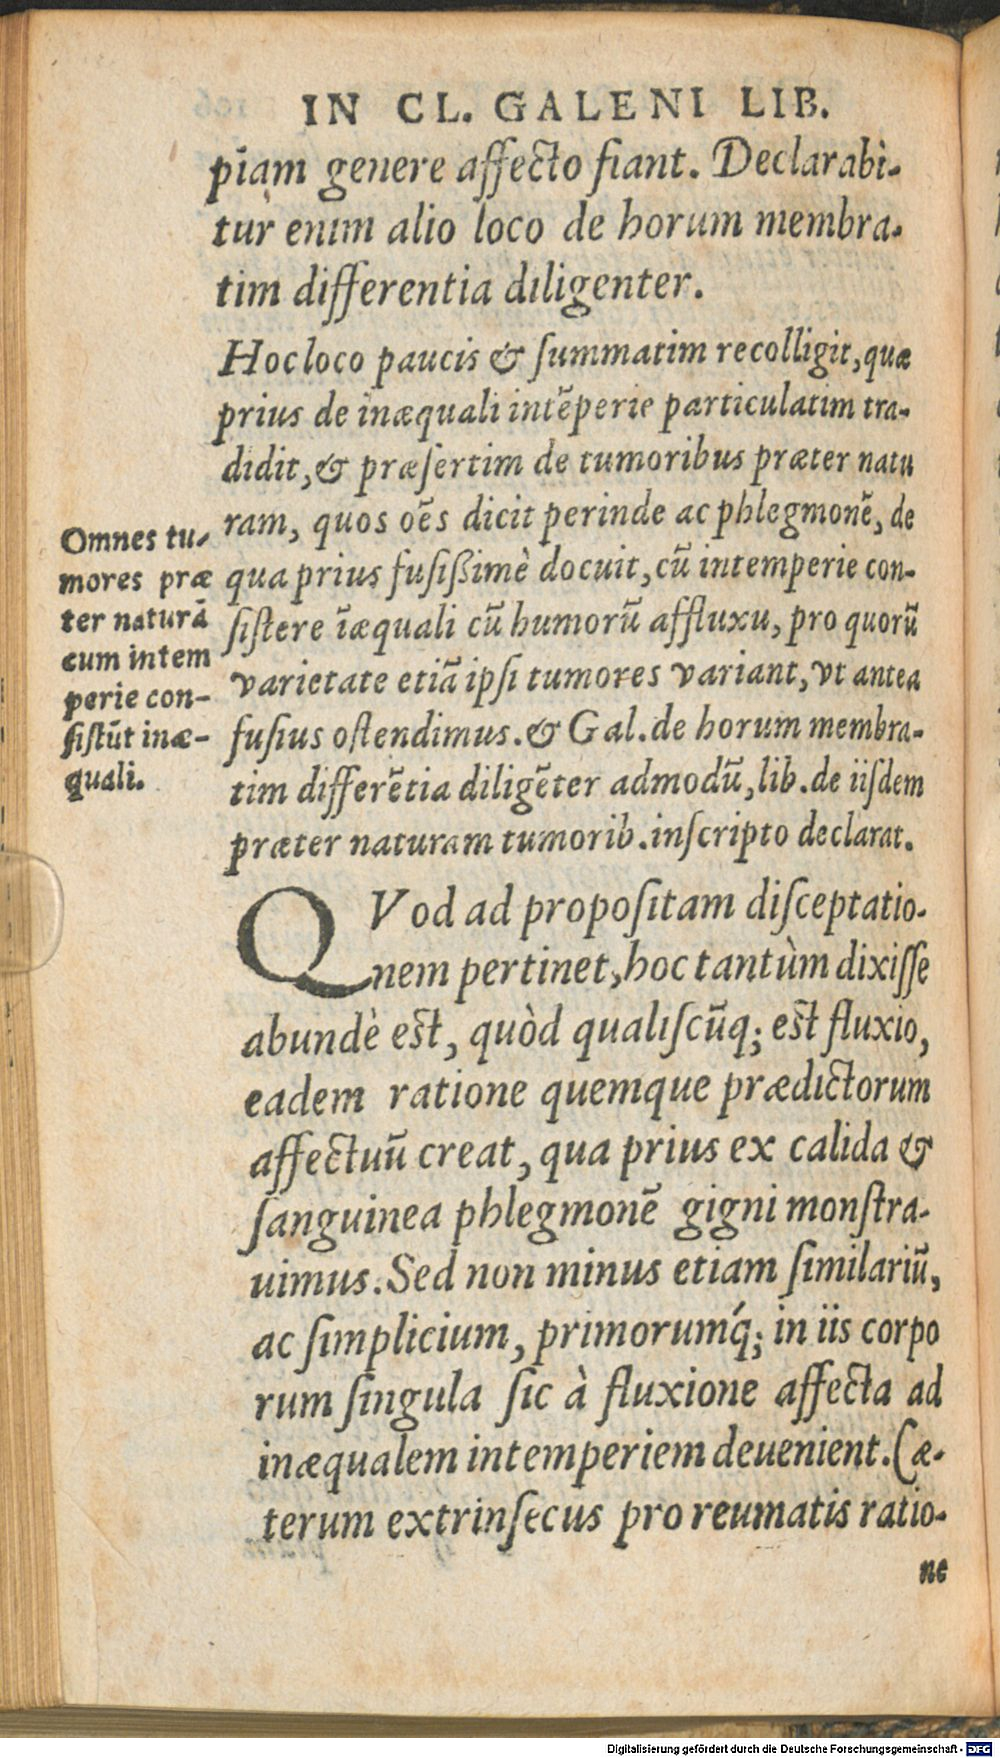 IN CL. GALENI LIB.
piam genere affecto fiant. Declarabi-
tur enim alio loco de horum membra-
tim differentia diligenter.
Hoc loco paucis & ſummatim recolligit, quæ
prius de inæquali intẽperie particulatim tra-
didit, & præſertim de tumoribus præter natu
ram, quos oẽs dicit perinde ac phlegmonẽ, de
qua prius fuſiſſimè docuit, cũ intemperie con-
ſiſtere ĩæquali cũ humorũ affluxu, pro quorũ
varietate etiã ipſi tumores variant, vt antea
fuſius oſtendimus. & Gal. de horum membra-
tim differẽtia diligẽter admodũ, lib. de iiſdem
præter naturam tumorib. inſcripto declarat.
Omnes tu-
mores præ
ter naturã
cum intem
perie con-
ſiſtũt inæ-
quali.
QVod ad propoſitam diſceptatio-
nem pertinet, hoc tantùm dixiſſe
abundè eſt, quòd qualiſcũq; eſt fluxio,
eadem ratione quemque prædictorum
affectuũ creat, qua prius ex calida &
ſanguinea phlegmonẽ gigni monſtra-
uimus. Sed non minus etiam ſimilariũ,
ac ſimplicium, primorumq́; in iis corpo
rum ſingula ſic à fluxione affecta ad
inæqualem intemperiem deuenient. Cæ-
terum extrinſecus pro reumatis ratio-
ne
Digitalisierung gefördert durch die Deutsche Forschungsgemeinschaft - DFG